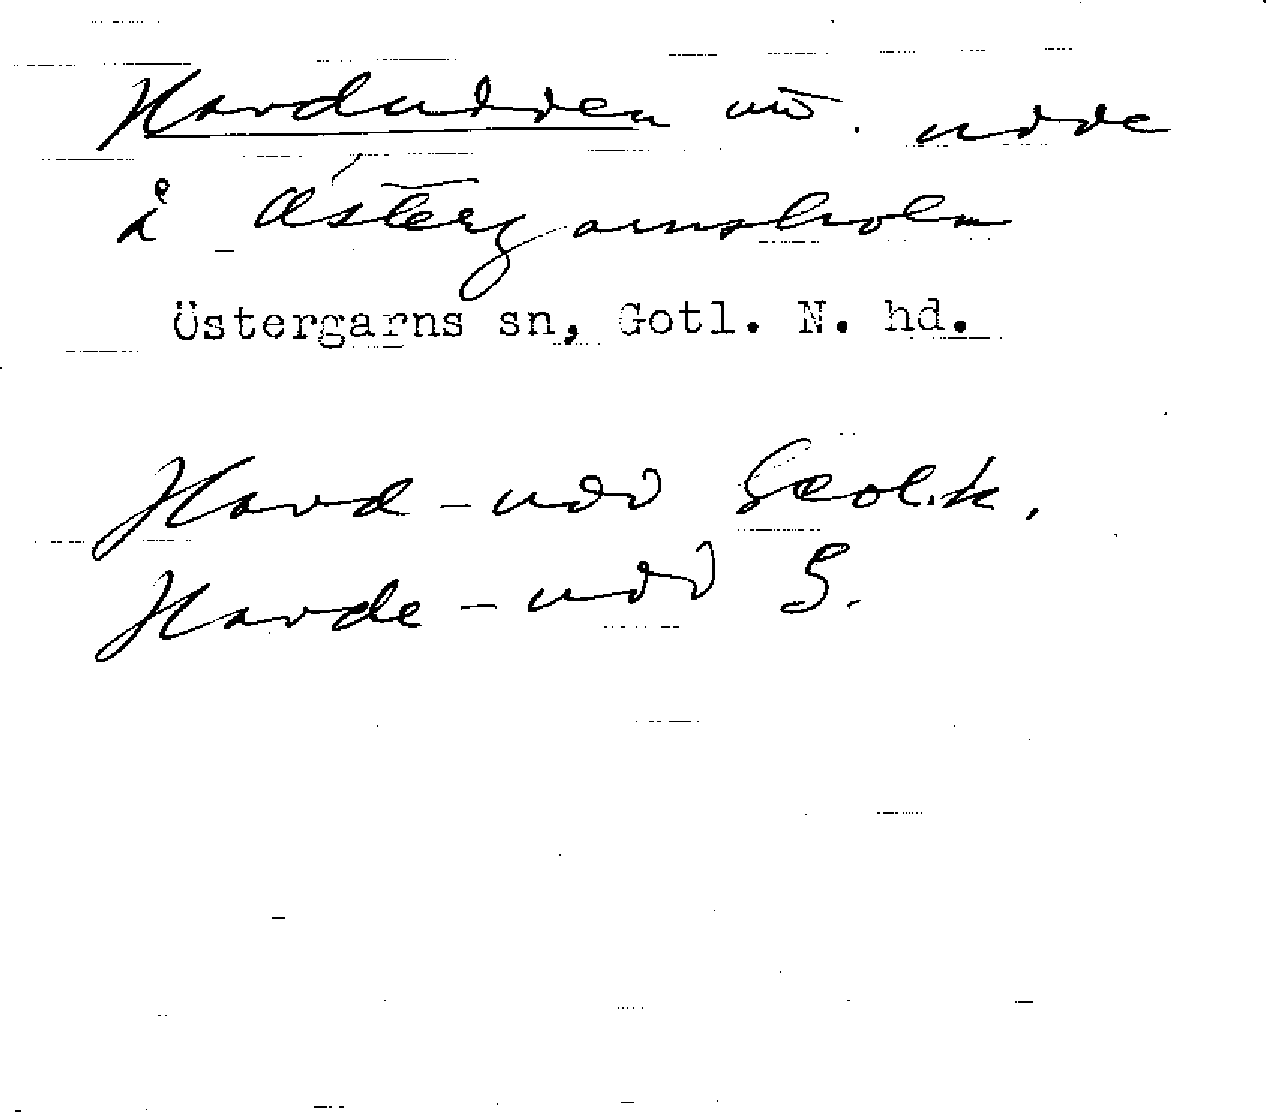 Hardudden nö. udde
å Östergarnsholm
Östergarns sn, Gotl. N. hd.
Hard-udd Geol.k,
Harde-udd G.